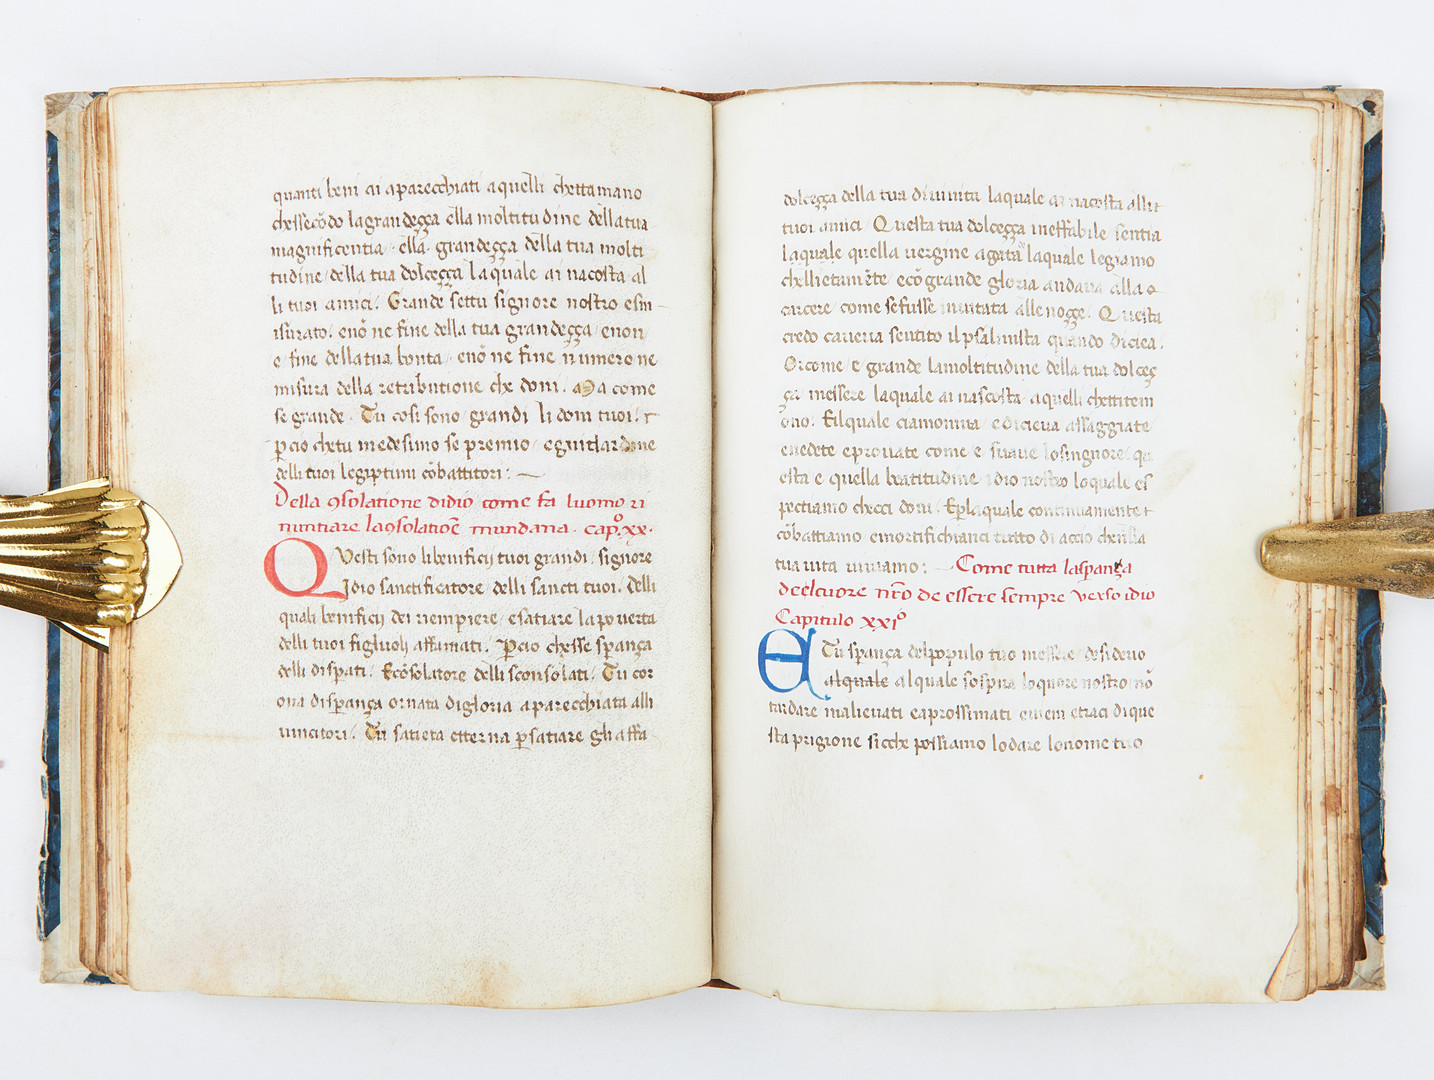 quanti beni ai aparecchiati aquelli chettamano
chesseco̅do lagrandeçça ella moltitudine dellatua
magnificentia ella grandeçça della tua molti
tudine della tua dolceçça laquale ai nacosta al
li tuoi amici. Grande settu signore nostro esm
isurato. eno̅ ne fine della tua grandeçça enon
e fine dellatua bonta. eno̅ ne fine numero ne
misura della retributione che doni. a come
se grande. Tu cosi sono grandi li doni tuoi.
ꝑcio chetu medesimo se premio eguitlardone
delli tuoi legiptimi co̅battitori:
Della ꝯsolatione didio come fa luomo ri
nuntiare laꝯsolatio̅e mundana. capº. xx.
Questi sono libenificij tuoi grandi. signore
Jdio sanctificatore delli sancti tuoi. delli
quali benificij dei riempiere esatiare lapouerta
delli tuoi figliuoli affamati. Ꝑcio chesse sperança
delli dispati. Eco̅solatore delli sconsolati. Tu cor
ona disperança ornata digloria aparecchiata alli
uincitori. Tu satieta etterna ꝑsatiare gli affa
dolceçça della tua diuinita laquale ai nacosta alli
tuoi amici Questa tua dolceçça ineffabile sentia
laquale quella uergine agata laquale legiamo
chellietame̅te eco̅ grande gloria andaua alla
carcere come sefusse inuitata alle noççe. Questa
credo caueria sentito ilpsalmista quando diciea.
Orcome e grande lamoltitudine della tua dolceç
ça messere laquale ai nascosta aquelli chettitem
ono. Eilquale ciamonina edicieua assaggiate
euedete eprouate come e suaue losingnore. qu
esta e quella beatitudine idio nostro loquale es
pectiamo checci doni. Eꝑlaquale continuamente
co̅battiamo emortifichianci tutto di accio chenlla
tua uita uiuiamo: Come tutta lasperança
deelcuore nr̅o de essere sempre verso idio
Capitulo xxiº
ETu sperança delpopulo tuo messere desideuo
alquale alquale sospira loquore nostro no̅
tardare malieuati eaprossimati euieni etraci dique
sta prigione sicche possiamo lodare lonome tuo